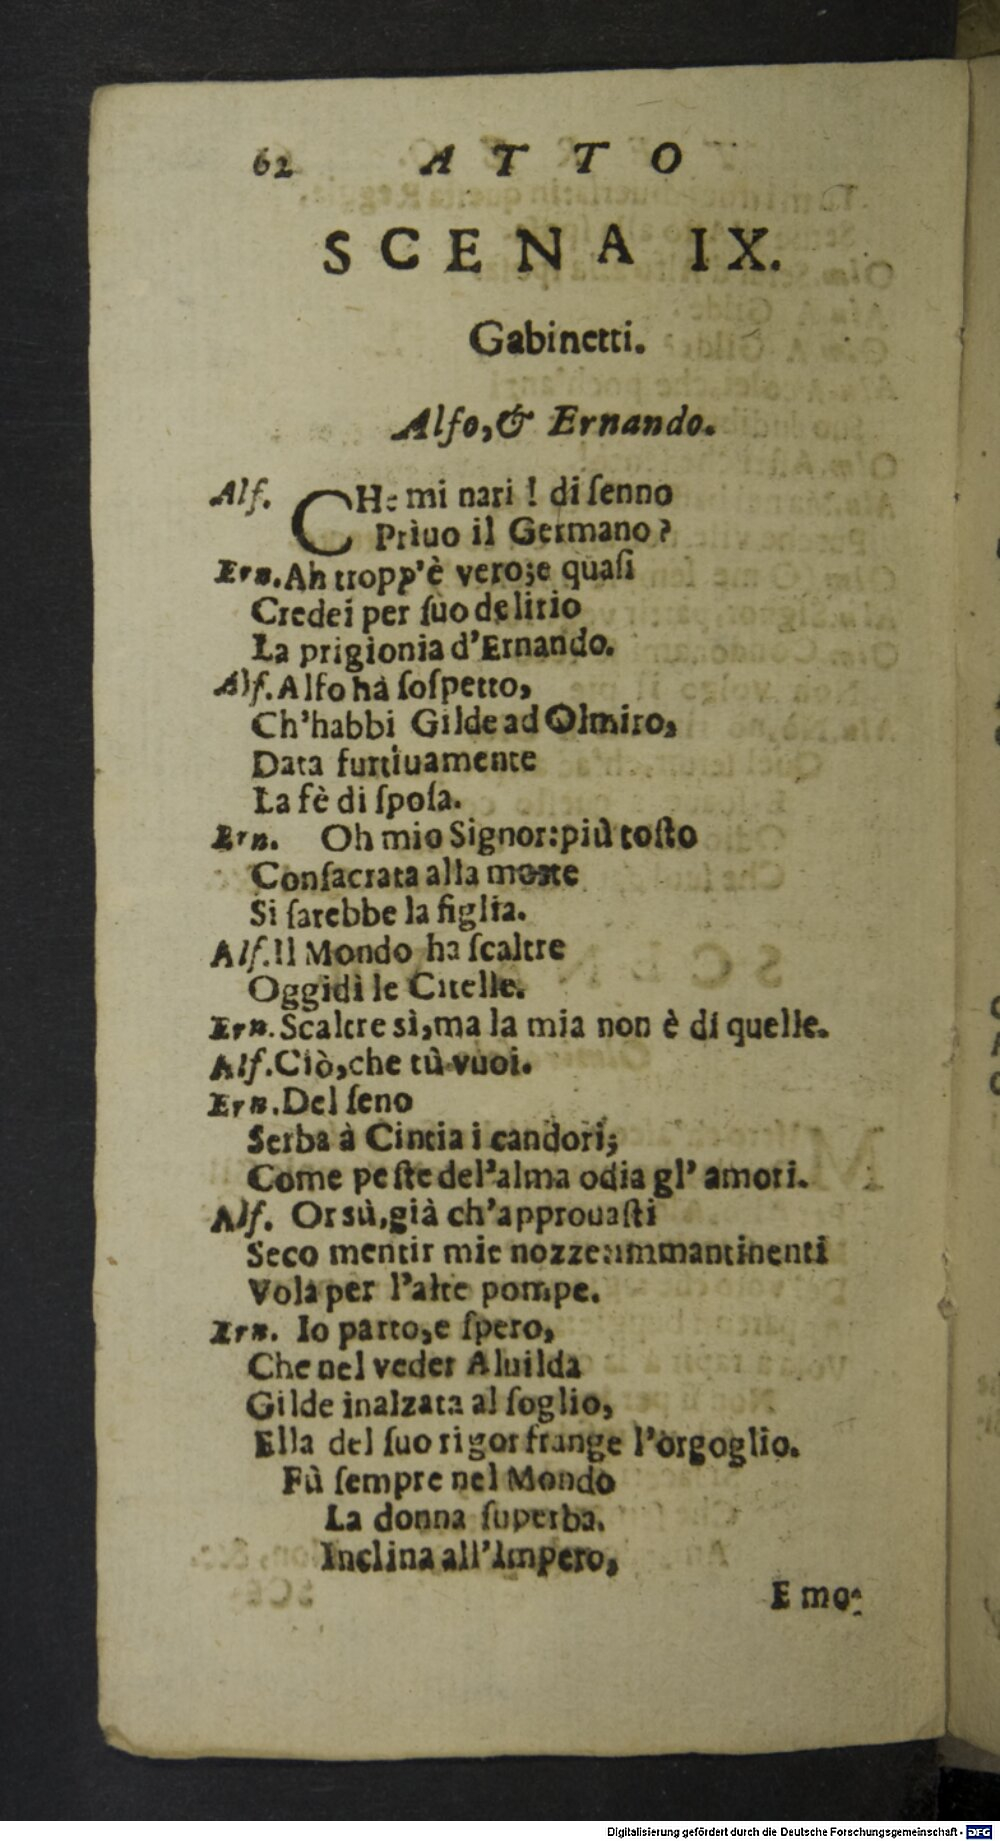 62 ATTO
SCENA IX.
Gabinetti.
Alfo, & Ernando.
Alf. CHe mi nari ! di ſenno
Priuo il Germano ?
Ern. Ah tropp'è vero; e quaſi
Credei per ſuo delirio
La prigionia d'Ernando.
Alf. Alfo hà ſoſpetto,
Ch'habbi Gilde ad Olmiro,
Data furtiuamente
La fè di ſpoſa.
Ern. Oh mio Signor: più toſto
Conſacrata alla morte
Si ſarebbe la figlia.
Alf. Il Mondo ha ſcaltre
Oggidì le Citelle.
Ern. Scaltre sì, ma la mia non è di quelle.
Alf. Ciò, che tù vuoi.
Ern. Del ſeno
Serba à Cintia i candori;
Come peſte del'alma odia gl' amori.
Alf. Orsù, già ch'approuaſti
Seco mentir mie nozze: immantinenti
Vola per l'alte pompe.
Ern. Io parto, e ſpero,
Che nel veder Aluilda
Gilde inalzata al ſoglio,
Ella del ſuo rigor frange l'orgoglio.
Fù ſempre nel Mondo
La donna ſuperba.
Inclina all'Impero,
E mo-
Digitalisierung gefördert durch die Deutsche Forschungsgemeinschaft - DFG